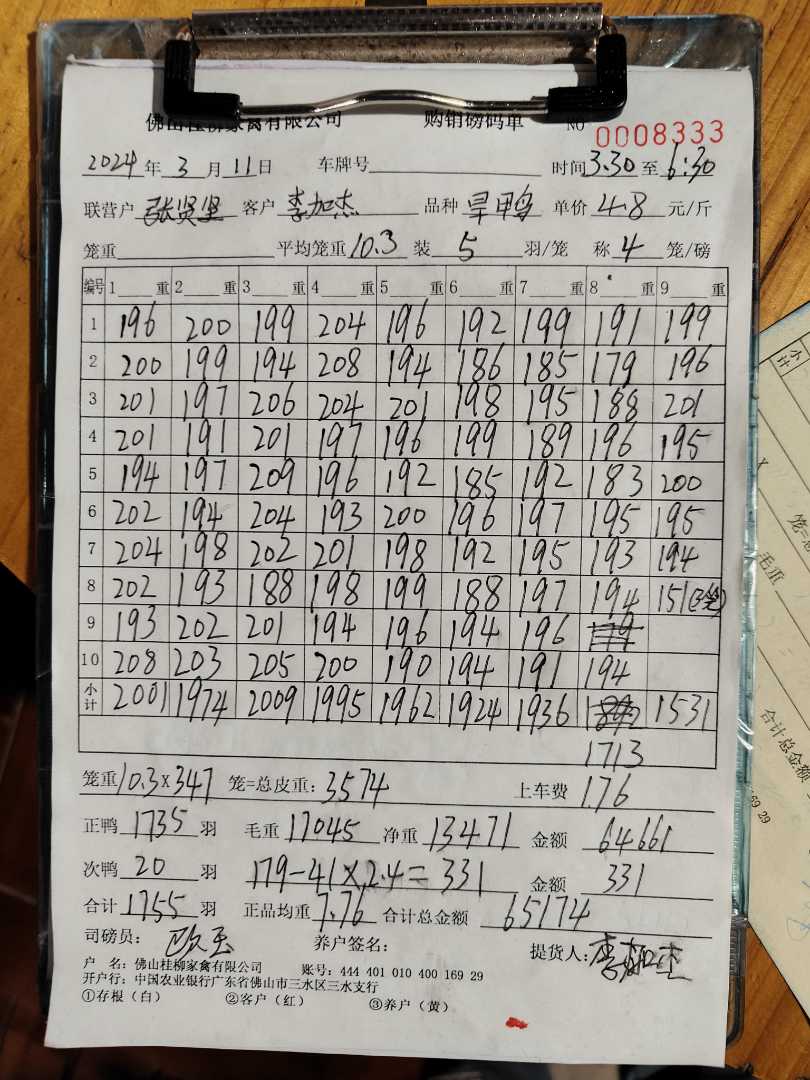 佛山桂柳家禽有限公司 购销磅码单 NO 0008333
2024年3月11日 车牌号 时间3.30至6:30
联营户 张贤坚 客户 李加杰 品种 旱鸭 单价 4.8 元/斤
笼重 平均笼重10.3 装 5 羽/笼 称 4 笼/磅
编号 1 重 2 重 3 重 4 重 5 重 6 重 7 重 8 重 9 重
1 196 200 199 204 196 192 199 191 199
2 200 199 194 208 194 186 185 179 196
3 201 197 206 204 201 198 195 188 201
4 201 191 201 197 196 199 189 196 195
5 194 197 209 196 192 185 192 183 200
6 202 194 204 193 200 196 197 195 195
7 204 198 202 201 198 192 195 193 194
8 202 193 188 198 199 188 197 194 151(3笼)
9 193 202 201 194 196 194 196
10 208 203 205 200 190 194 191 194
小计 2001 1974 2009 1995 1962 1924 1936 1892 1531
1713
笼重10.3×347 笼=总皮重:3574 上车费 176
正鸭 1735 羽 毛重 17045 净重 13471 金额 64661
次鸭 20 羽 179-41×2.4=331 金额 331
合计 1755 羽 正品均重 7.76 合计总金额 65174
司磅员: 养户签名: 提货人: 李加杰
户 名:佛山桂柳家禽有限公司 账号:444 401 010 400 169 29
开户行:中国农业银行广东省佛山市三水区三水支行
①存根(白) ②客户(红) ③养户(黄)
小计
笼=总
毛重
合计总金额
169 29